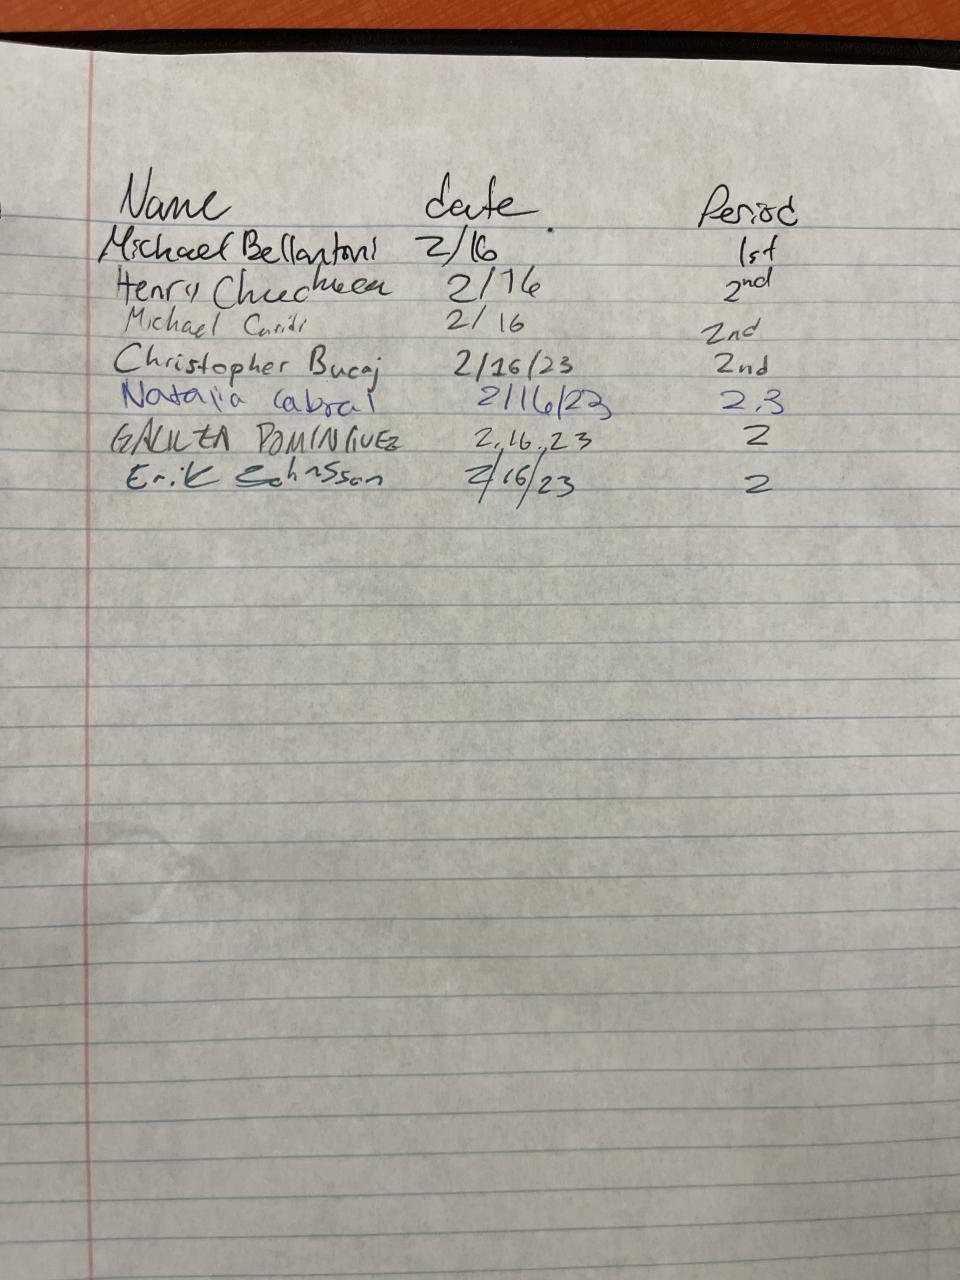 Name date Period
Michael Bellantoni 2/16 1st
Henry 2/16 2nd
Michael Caridi 2/16 2nd
Christopher Bucaj 2/16/23 2nd
Natalia Cabral 2/16/23 2.3
DOMINGUEZ 2.16.23 2
Erik 2/16/23 2